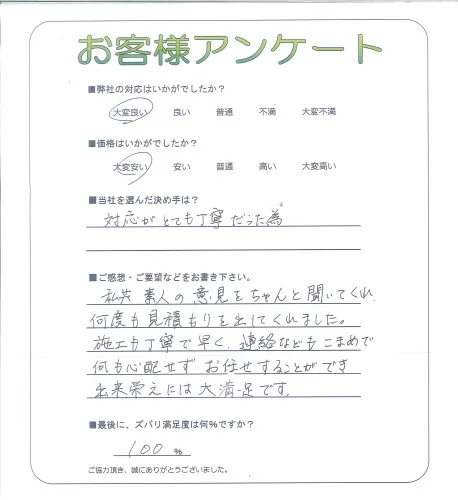 お客様アンケート
■弊社の対応はいかがでしたか？
大変良い 良い 普通 不満 大変不満
■価格はいかがでしたか？
大変安い 安い 普通 高い 大変高い
■当社を選んだ決め手は？
対応がとても丁寧だった為
■ご感想・ご要望などをお書き下さい。
私共素人の意見をちゃんと聞いてくれ
何度も見積もりを出してくれました。
施工も丁寧で早く、連絡などもこまめで
何も心配せずお任せすることができ
出来栄えには大満足です。
■最後に、ズバリ満足度は何%ですか？
100 %
ご協力頂き、誠にありがとうございました。